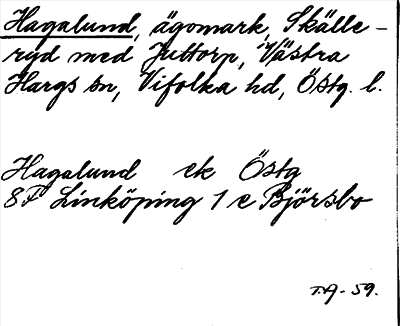 Hagalund, ägomark, Skälle-
ryd med Juttorp, Västra
Hargs sn, Vifolka hd, Östg. l.
Hagalund ek Östg
8F Linköping 1 e Björsbo
T.A - 59.